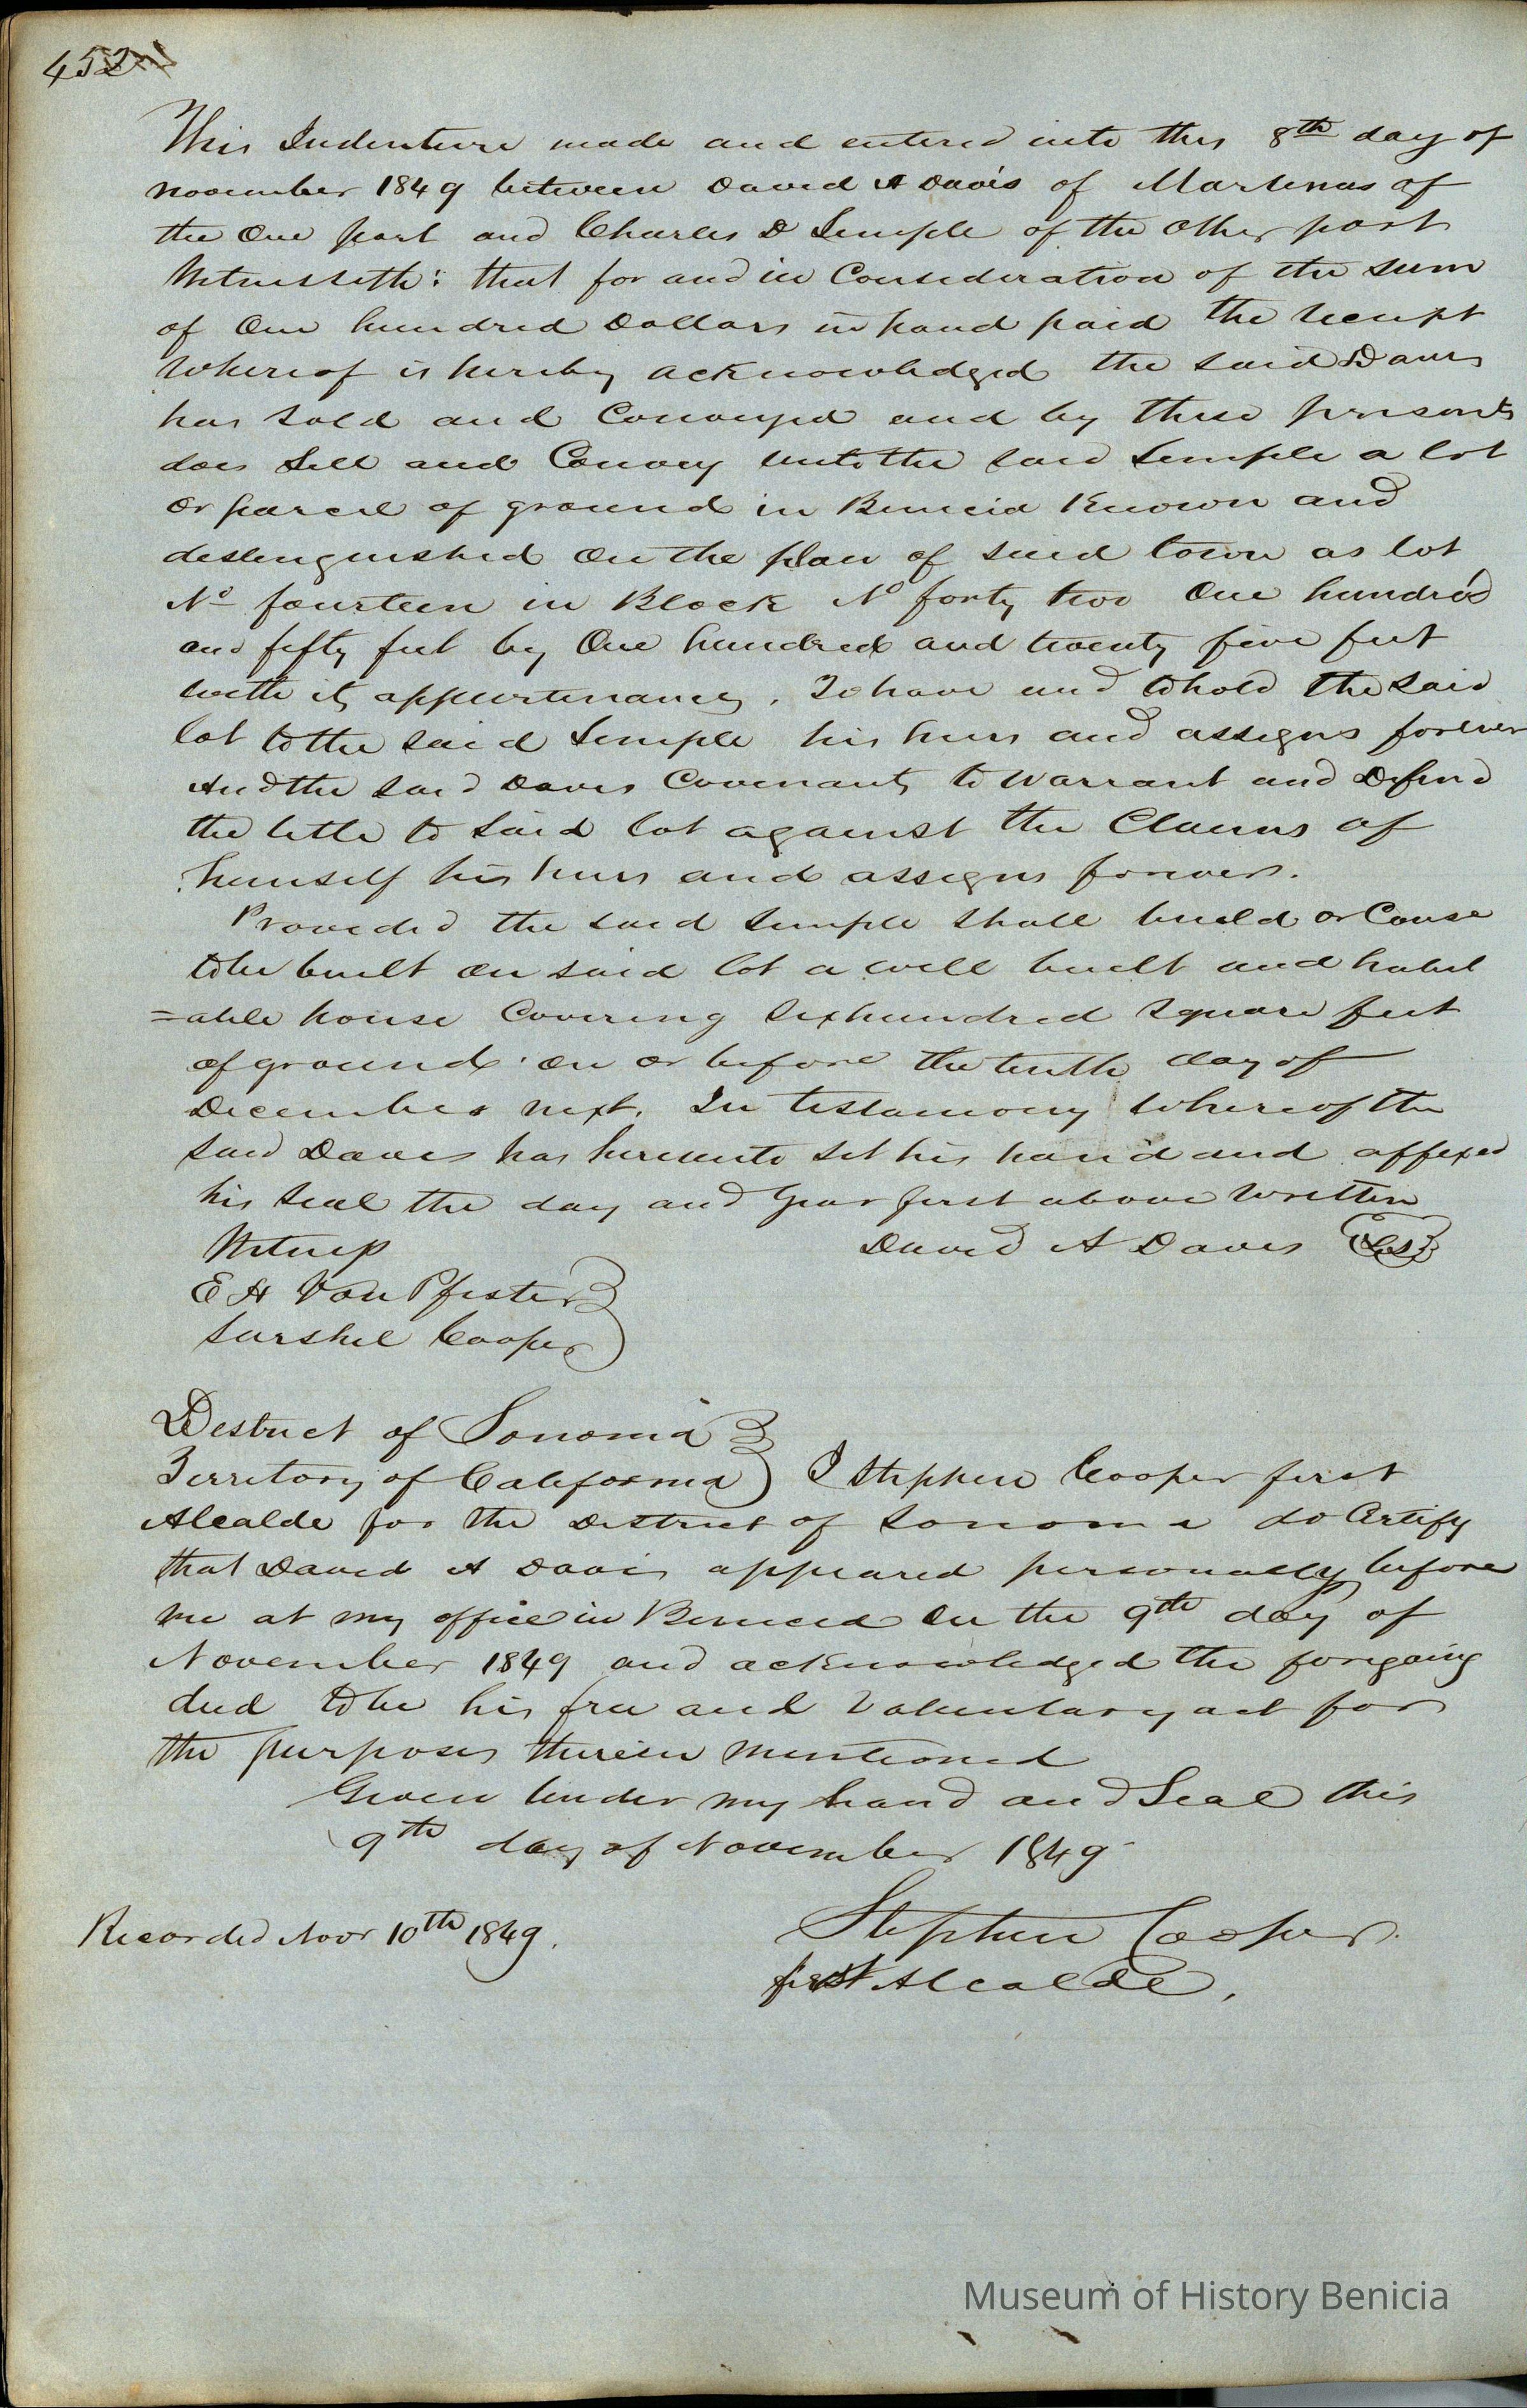 452
This Indenture made and entered into this 8th day of
november 1849 between David A Davis of Martinas of
the One part and Charles D Semple of the Other part
Witnesseth: that for and in Consideration of the sum
of One hundred Dollars in hand paid the receipt
Whereof is hereby acknowledged the said Davis
has sold and Conveyed and by these presents
does Sell and Convey unto the said Semple a lot
or parcel of ground in Benicia Known and
destinguished On the plan of said town as lot
No fourteen in Block No forty two One hundred
and fifty feet by One hundred and twenty five feet
with its appurtenances. To have and to hold the said
lot to the said Semple his heirs and assigns forever
And the said Davis Covenants to Warrant and Defend
the title to said lot against the Claims of
himself his heirs and assigns forever.
Provided the said Semple shall build or Cause
to be built on said lot a well built and habit
=able house Covering Six hundred Square feet
of ground on or before the tenth day of
December next. In testamony whereof the
said Davis has hereunto set his hand and affixed
his seal the day and year first above Written
Witness David A Davis (LS)
E H Von Pfister
Sarshel Cooper
District of Sonoma
Territory of California I Stephen Cooper first
Alcalde for the District of Sonoma do Certify
that David A Davis appeared personally before
me at my office in Benicia On the 9th day of
November 1849 and acknowledged the foregoing
deed to be his free and Voluntary act for
the purposes therein Mentioned
Given Under my hand and Seal this
9th day of November 1849
Recorded Novr 10th 1849. Stephen Cooper
first Alcalde,
Museum of History Benicia